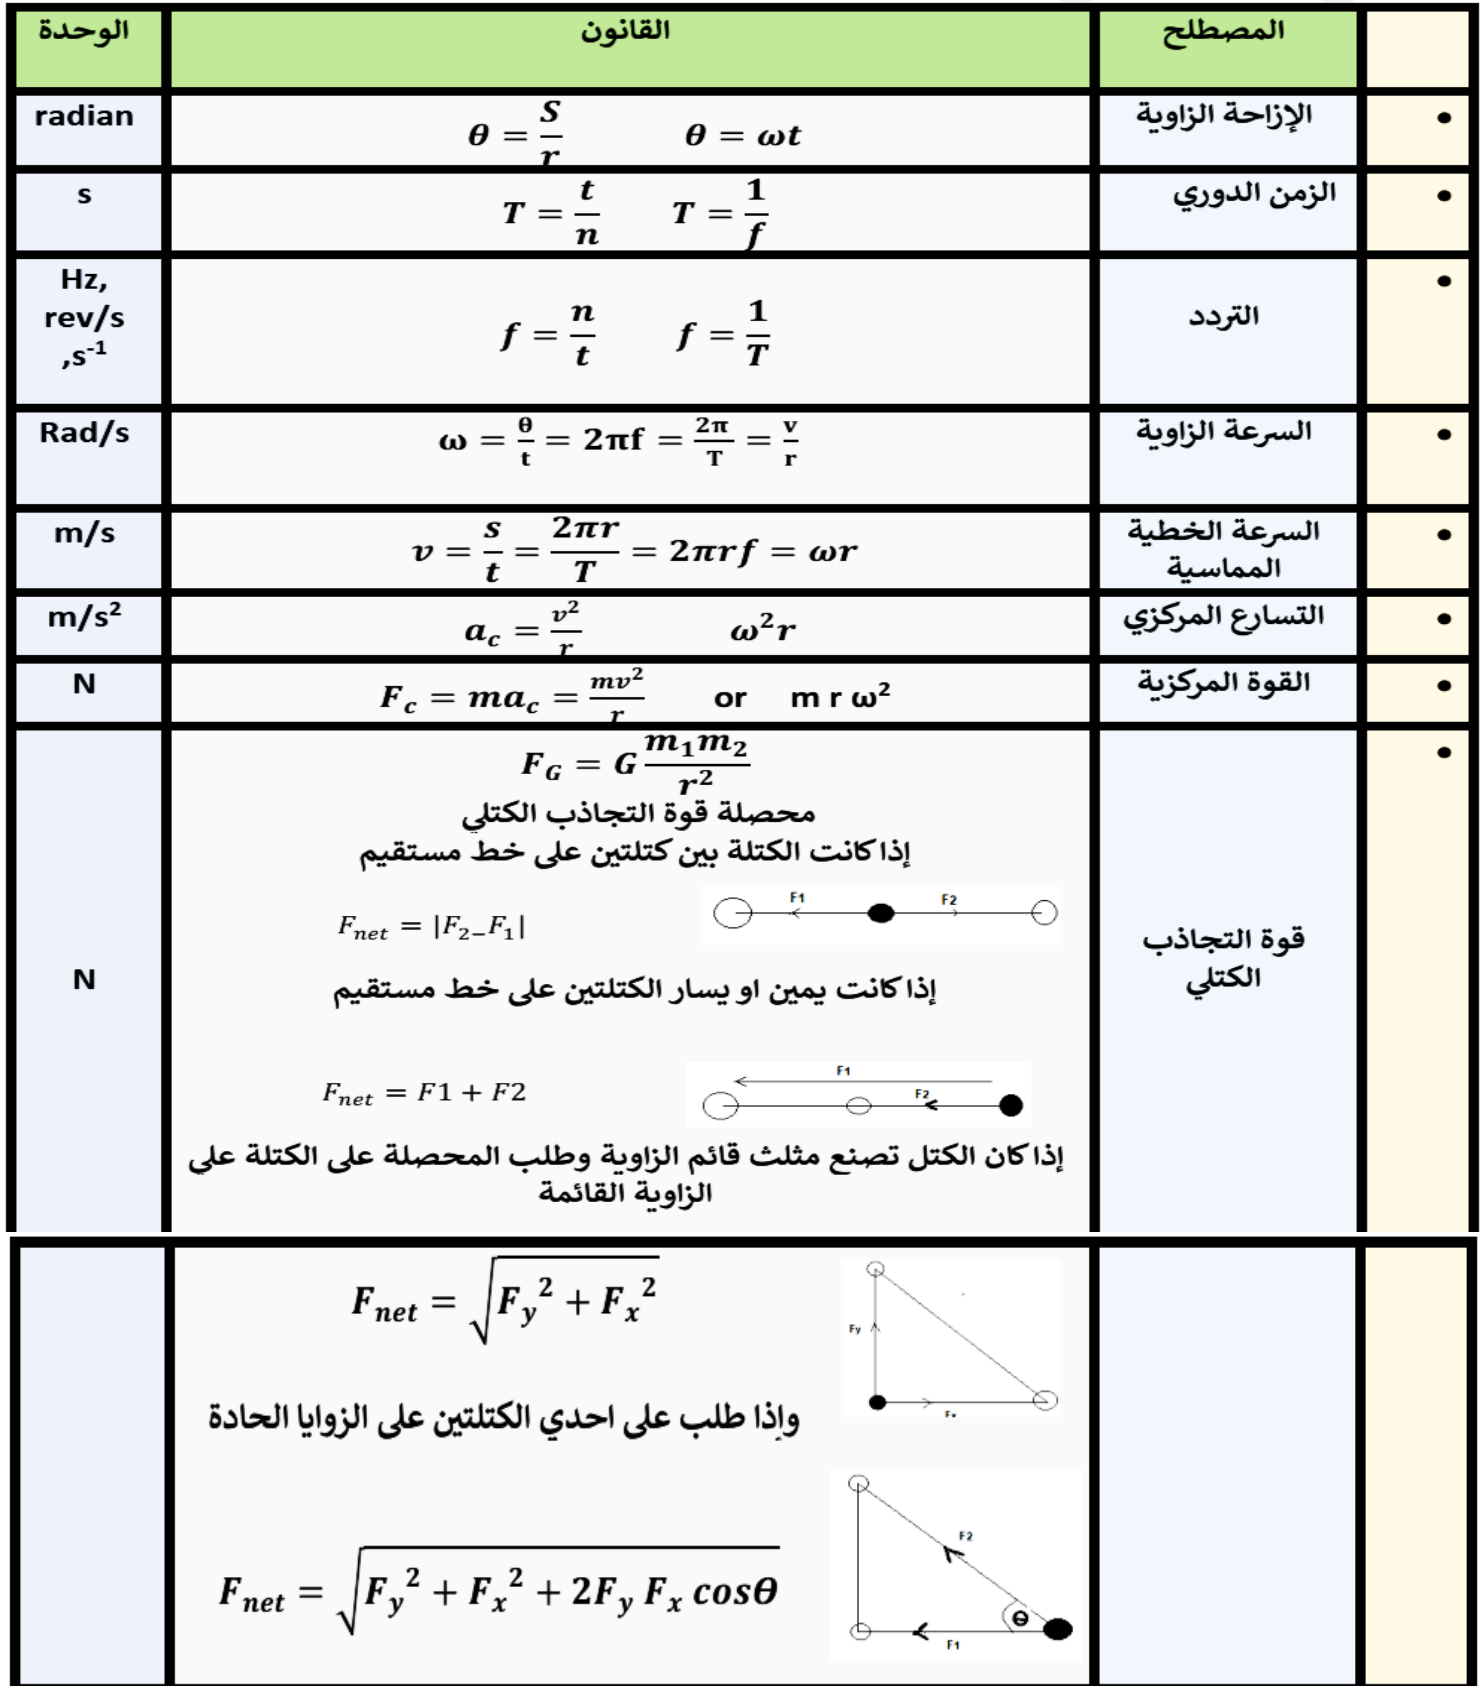 المصطلح القانون الوحدة
• الإزاحة الزاوية θ = S/r θ = ωt radian
• الزمن الدوري T = t/n T = 1/f s
• التردد f = n/t f = 1/T Hz,
rev/s
,s⁻¹
• السرعة الزاوية ω = θ/t = 2πf = 2π/T = v/r Rad/s
• السرعة الخطية
المماسية v = s/t = 2πr/T = 2πrf = ωr m/s
• التسارع المركزي a_c = v²/r ω²r m/s²
• القوة المركزية F_c = ma_c = mv²/r or m r ω² N
• قوة التجاذب
الكتلي
F_G = G m₁m₂/r²
محصلة قوة التجاذب الكتلي
إذا كانت الكتلة بين كتلتين على خط مستقيم
F1 F2
F_net = |F₂₋F₁|
N
إذا كانت يمين او يسار الكتلتين على خط مستقيم
F1
F2
F_net = F1 + F2
إذا كان الكتل تصنع مثلث قائم الزاوية وطلب المحصلة على الكتلة علي
الزاوية القائمة
F_net = √(F_y² + F_x²)
Fy
Fx
وإذا طلب على احدي الكتلتين على الزوايا الحادة
F_net = √(F_y² + F_x² + 2F_y F_x cosθ)
F2
θ
F1